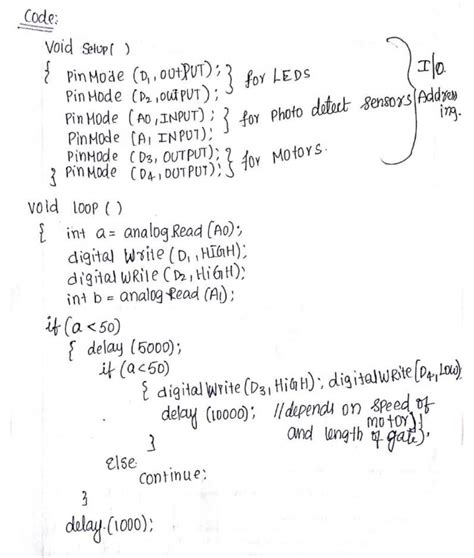 Code:
Void Setup( )
{ PinMode (D1, OUTPUT); } for LEDS
PinMode (D2, OUTPUT);
PinMode (A0, INPUT); } for Photo detect sensors
PinMode (A1 INPUT);
PinMode (D3, OUTPUT); } for Motors.
} PinMode (D4, OUTPUT);
I/O. Addressing.
Void loop ( )
{ int a = analog Read (A0);
digital Write (D1, HIGH);
digital WRite (D2, HiGH);
int b = analog Read (A1);
if (a < 50)
{ delay (5000);
if (a < 50)
{ digital Write (D3, HiGH); digital WRite (D4, Low);
delay (10000); //depends on speed of
motor)
and length of gate).
}
Else
continue;
}
delay.(1000);